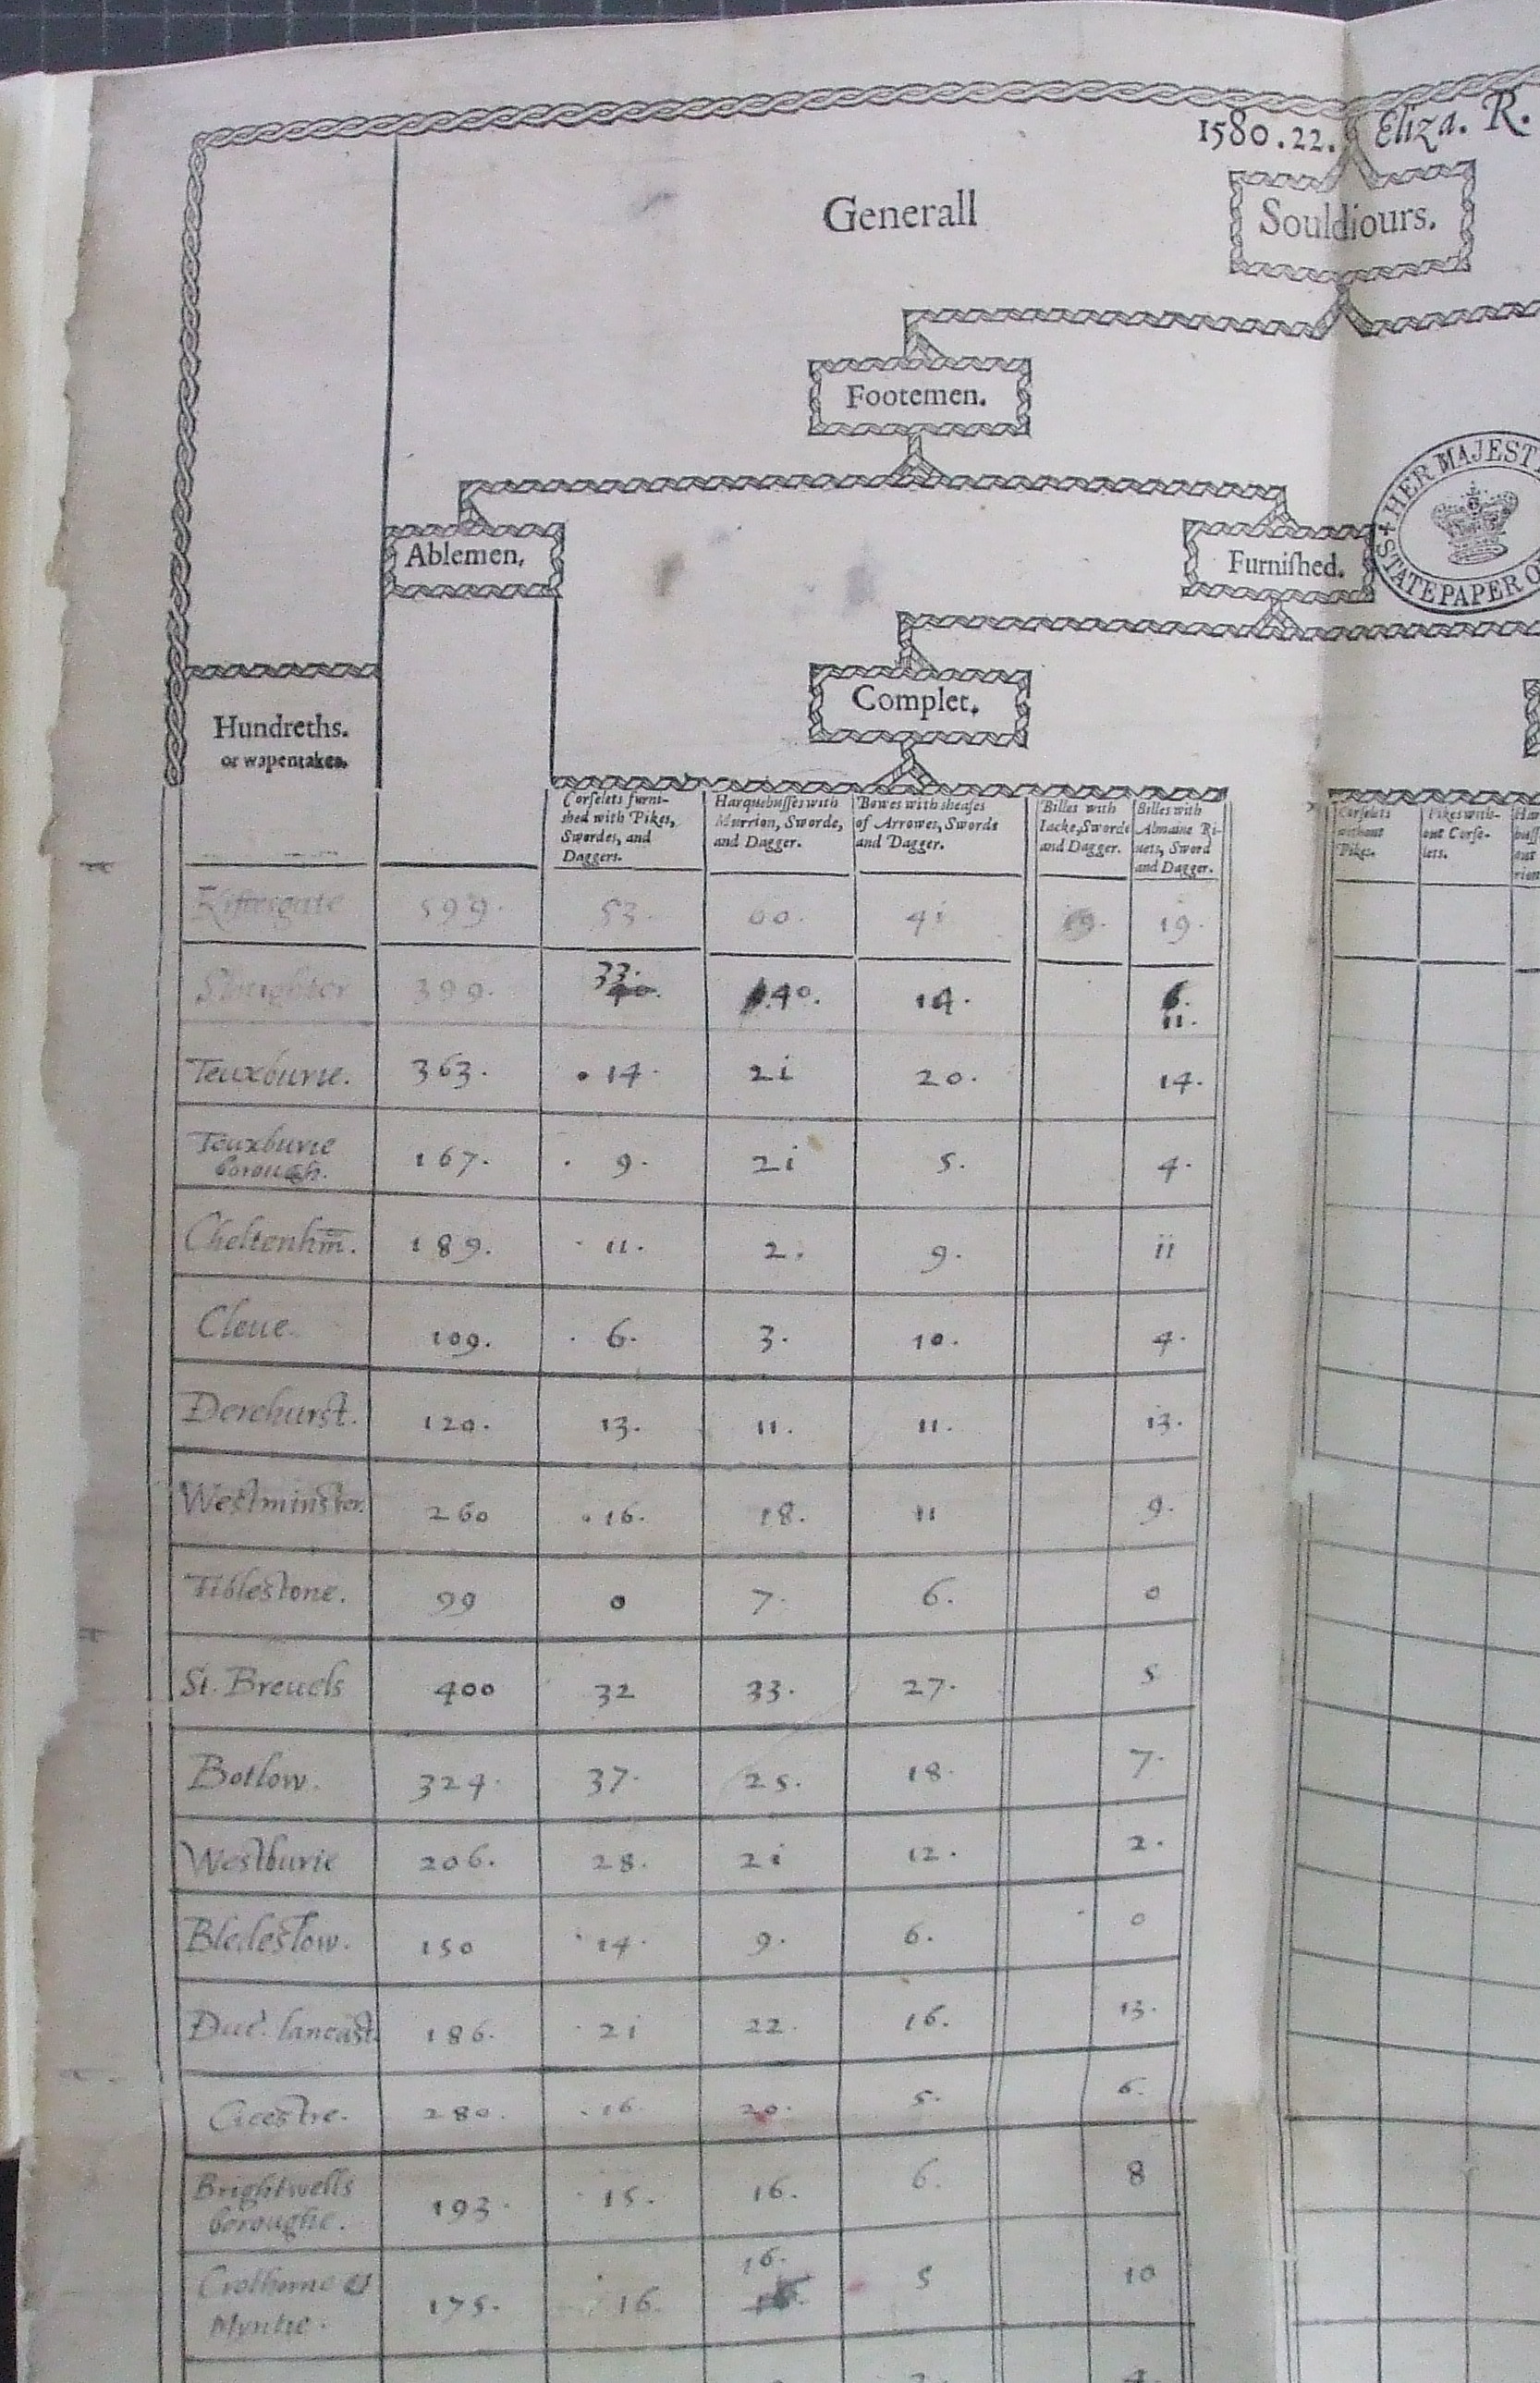 1580.22. Eliza. R.
Generall
Souldiours.
Footemen.
HER MAJEST
STATE PAPER O
Ablemen.
Furnished.
Complet.
Hundreths.
or wapentakes.
Corselets furni-
shed with Pikes,
Swordes, and
Daggers.
Harquebusses with
Murrion, Sworde,
and Dagger.
Bowes with sheafes
of Arrowes, Sworde
and Dagger.
Billes with
Iacke, Sworde
and Dagger.
Billes with
Almaine Ri-
uets, Sword
and Dagger.
Corselets
without
Pikes.
Pikes with-
out Corse-
lets.
Kiftesgate 599. 53. 60. 41 19. 19.
Slaughter 399. 33. 40. 14. 11.
Teuxburie. 363. 14. 21 20. 14.
Teuxburie
borough. 167. 9. 21 5. 4.
Cheltenhm̄. 189. 11. 2. 9. 11
Cleue. 109. 6. 3. 10. 4.
Derehurst. 120. 13. 11. 11. 13.
Westminster. 260 16. 18. 11 9.
Tiblestone. 99 0 7. 6. 0
St. Breuels 400 32 33. 27. 5
Botlow. 324. 37. 25. 18. 7.
Westburie 206. 28. 21 12. 2.
Bledeslow. 150 14. 9. 6. 0
Duc. lancast. 186. 21 22. 16. 13.
Cicestre. 280. 16. 20. 5. 6.
Brightwells
boroughe. 193. 15. 16. 6. 8
Crothorne et
Myntie. 175. 16. 16. 5 10